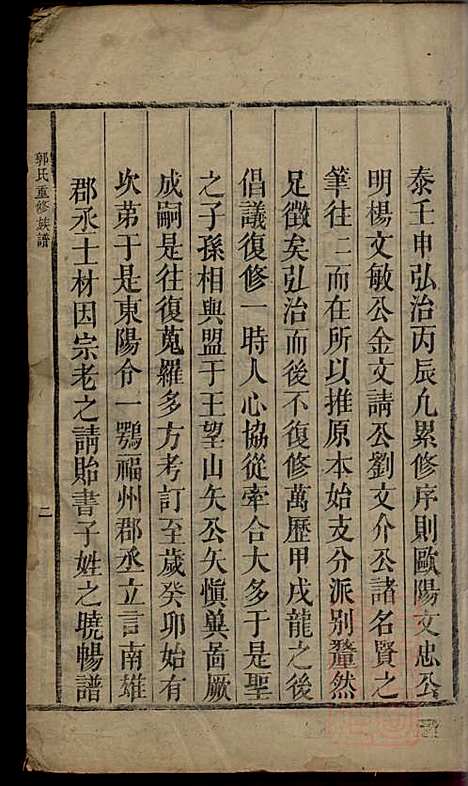 泰壬申弘治丙辰凡累修序則歐陽文忠公
明楊文敏公金文請公劉文介公諸名賢之
筆往二而在所以推原本始支分派別犛然
足徵矣弘治而後不復修萬歷甲戌龍之後
倡議復修一時人心協從牽合大多于是聖
之子孫相與盟于王望山矢公矢慎冀啚厥
成嗣是往復蒐羅多方考訂至歲癸卯始有
次第于是東陽令一鶚福州郡丞立言南雄
郡丞士材因宗老之請貽書子姓之曉暢譜
郭氏重修族譜
二